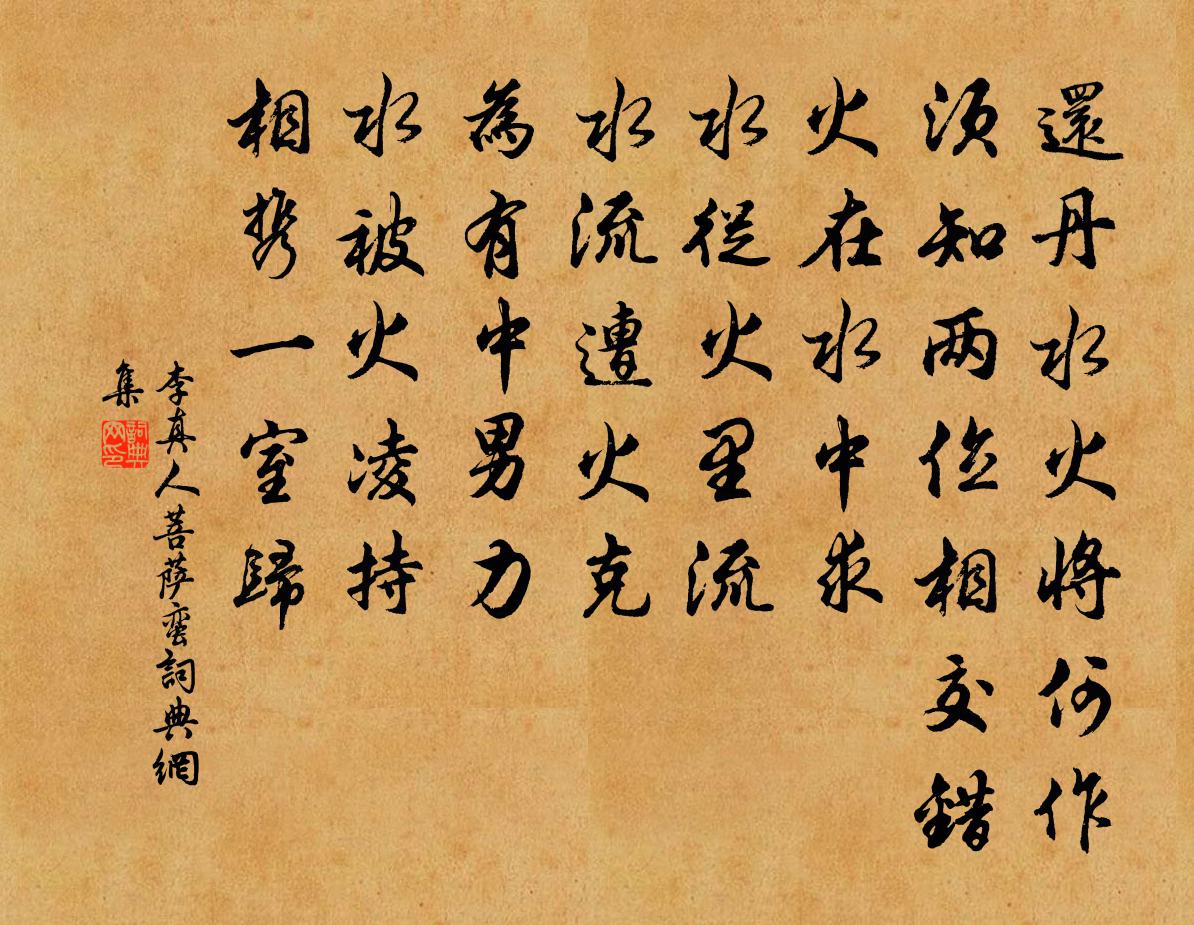 還丹水火將何作
须知两位相交錯
火在水中求
水從火里流
水流遭火克
為有中男力
水被火凌持
相携一室歸
李真人菩薩蛮詞典網
集
詞典网印